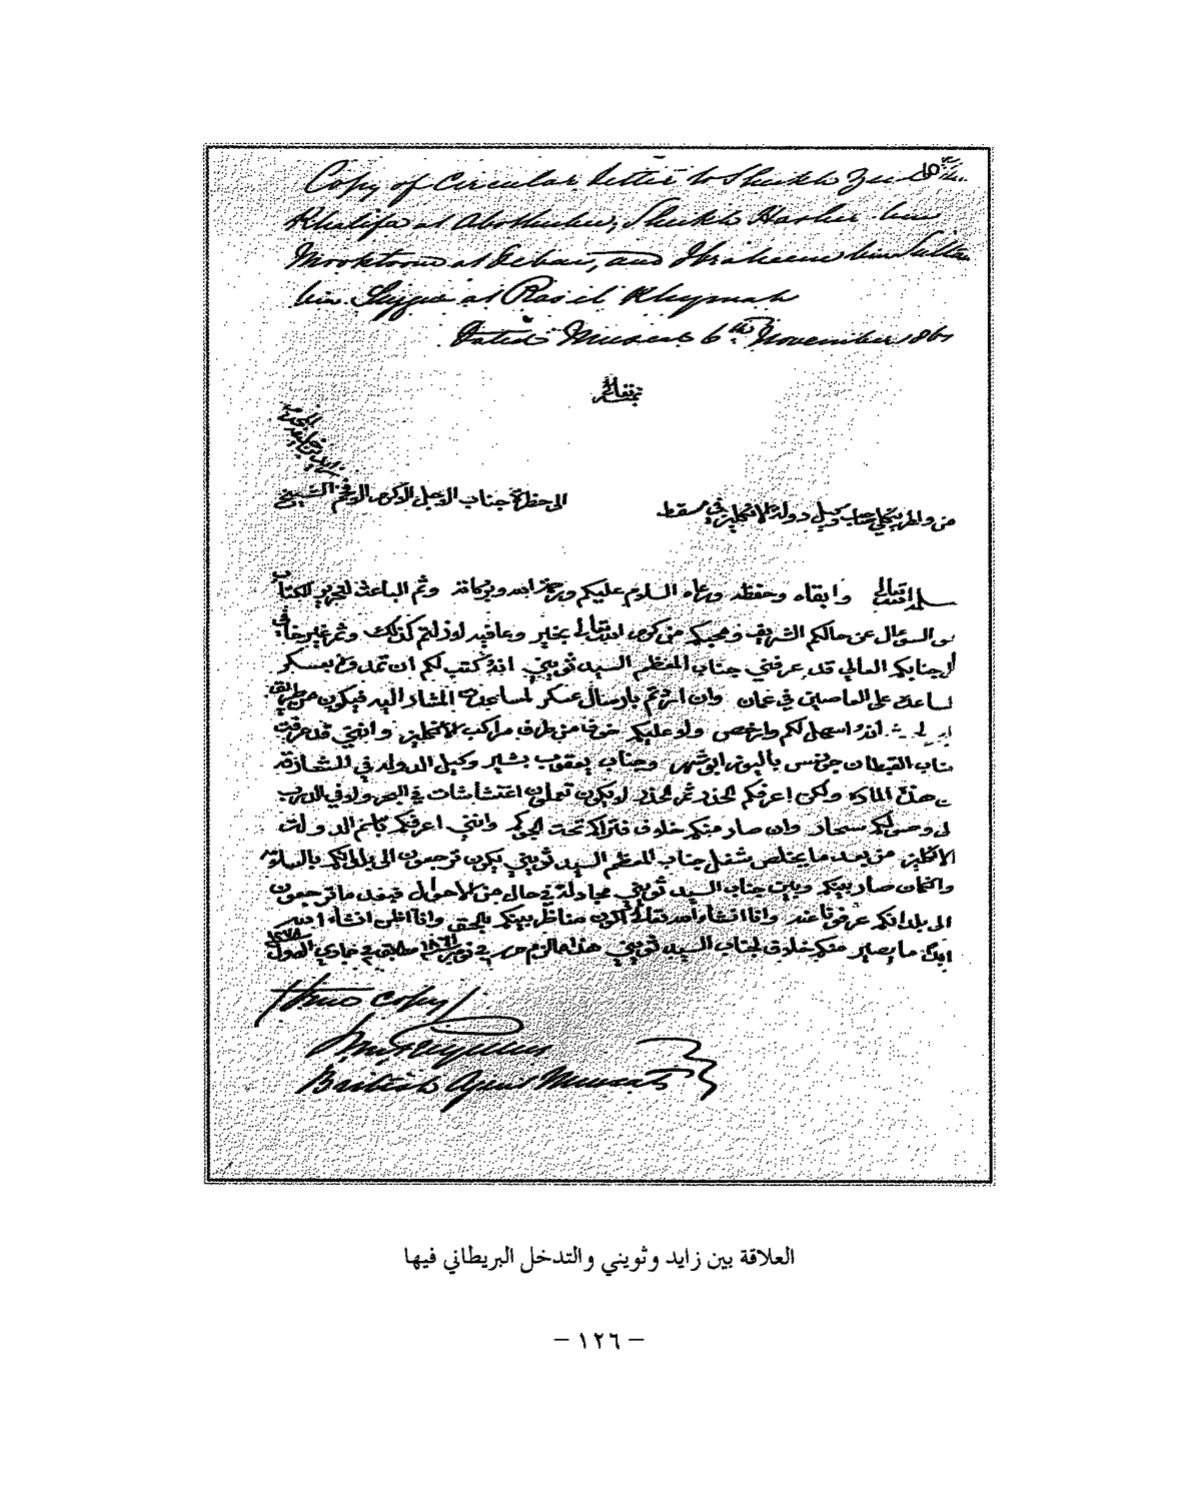 Copy of Circular Letter to Sheikh Zueed bin
Khalifa at Aboothubee, Sheikh Hasher bin
Mooktoom at Debai, and Ibraheem bin Sultan
bin Suggur at Ras il Khymah
Dated Muscat 6th November 1861
الى حضرة جناب الاجل الاكرم الافخم الشيخ
زايد بن خليفه المحترم
من وليم جناب وكيل دولة الانكليز في مسقط
سلمه الله تعالى وابقاه وحفظه ورعاه السلام عليكم ورحمة الله وبركاته وثم الباعث لتحرير الكتاب
السؤال عن حالكم الشريف ومحبكم من كرم الله تعالى بخير وعافيه لا زلتم كذلك وثم غير خافي
جنابكم العالي قد عرفني جناب المعظم السيد ثويني انه كتب لكم ان تمدونه بعسكر
لمساعدته على العاصين في عمان وان اردتم بارسال عسكر لمساعدة المشار اليه فيكون من طريق
انه اسهل لكم وارخص ولا عليكم خوف من طرف مراكب الانكليز وانني قد عرفت
جناب القبطان جونس باليوز ابوشهر وجناب يعقوب بشير وكيل الدولة في الشارقة
هذه المادة ولكن اعرفكم الحذر ثم الحذر لا يكون تعملون اغتشاشات في البحر ولا في الدرب
الى وصولكم سحار وان صار منكم خلاف فتراكم تحت وانني اعرفكم كلام الدولت
الانكليز من بعد ما يخلص شغل جناب المعظم السيد ثويني يكون ترجعون الى بلدانكم بالسلامه
وان كان صار بينكم وبين جناب السيد ثويني مجادلة في حال من الاحوال فبعد ما ترجعون
الى بلدانكم عرفونا عنه وانا انشاء الله تعالى اكون مناظر بينكم بالحق وانا اظن انشاء الله
ابدا ما يصير منكم خلاف لجناب السيد ثويني هذا ما لزم حرر في نوفمبر ١٨٦١ مطابق في جمادي الاول ١٢٧٨
True copy
British Agent Muscat
العلاقة بين زايد وثويني والتدخل البريطاني فيها
– ١٢٦ –